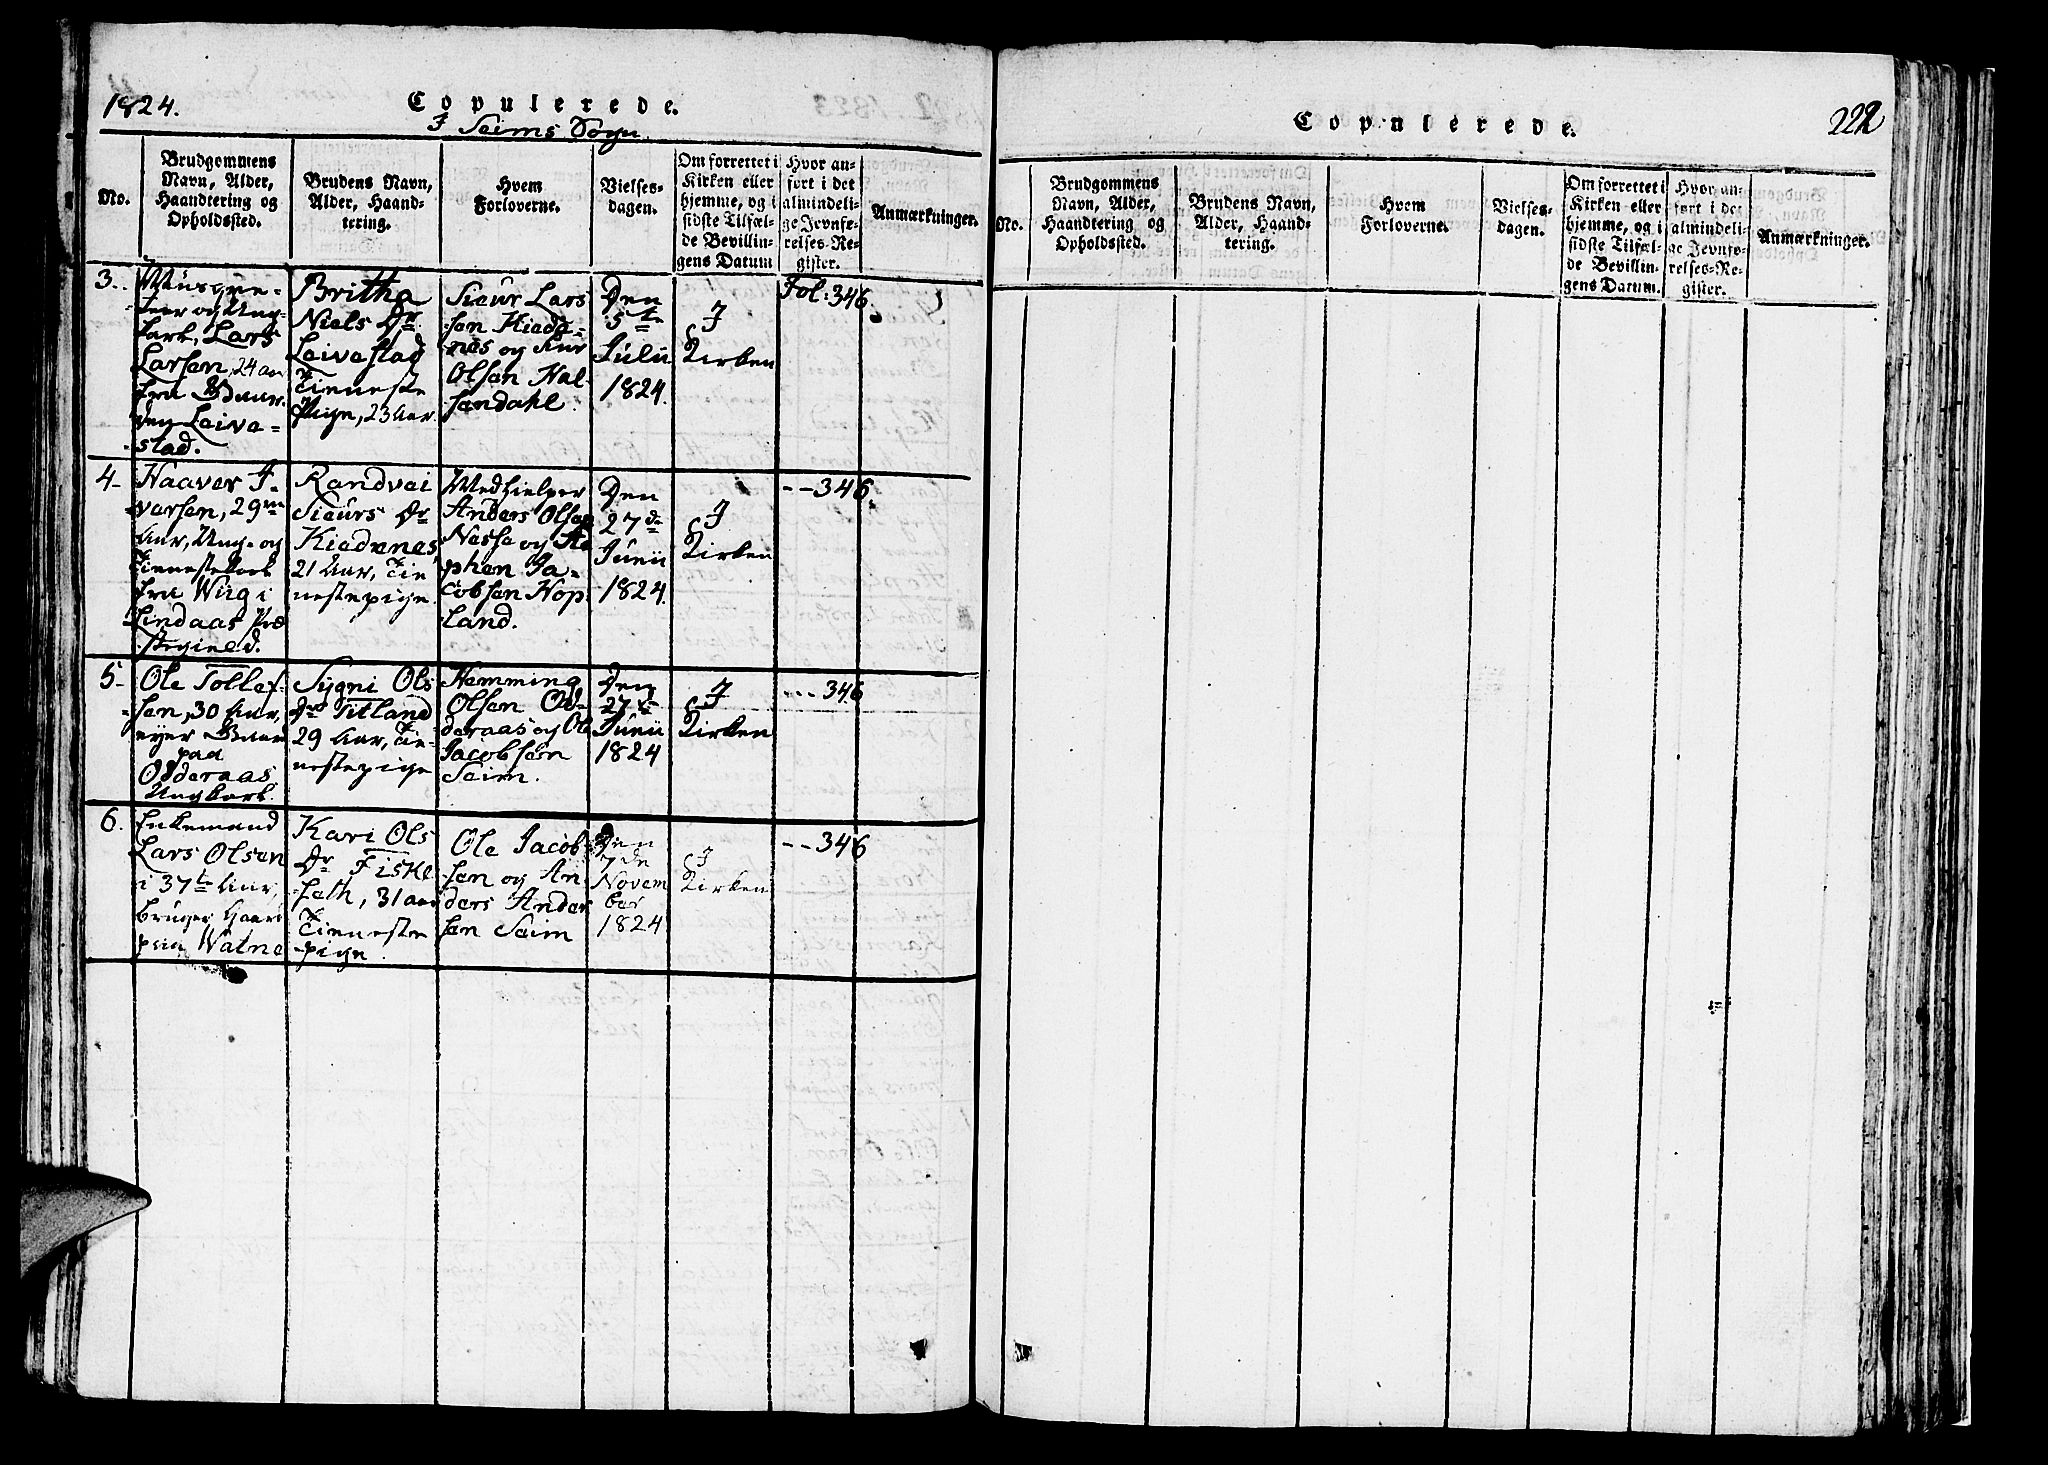 1824.
Copulerede.
I Seims Sogn.
No.
Brudgommens
Navn, Alder,
Haandtering og
Opholdssted.
Brudens Navn,
Alder, Haand-
tering.
Hvem
Forloverne.
Vielses-
dagen.
Om forrettet i
Kirken eller
hjemme, og i
sidste Tilfæl-
de Bevillin-
gens Datum
Hvor an-
ført i det
almindeli-
ge Jevnfø-
relses-Re-
gister.
Anmærkninger.
3.
Musque-
teer og Ung-
karl, Lars
Larsen, 24 aar
fra Gaar-
den Leiva-
stad.
Britha
Niels Dr.
Leivestad
Tieneste
Pige, 23 Aar.
Siur Lars
sen Kieda-
nes og Siur
Olsen Hal-
sendahl.
Den
5te
Julii
1824.
I
Kirken
Fol: 346.
4-
Haaver I-
varsen, 29
Aar, Ung- og
Tienestekarl
fra Wiig i
Lindaas Præ
stegield.
Randvei
Siurs Dr
Kiedenes,
21 Aar, Tie-
nestepige.
Medhielper
Anders Olsen
Nesse og Ste
phen Ja-
cobsen Hop
land.
Den
27de
Junii
1824.
I
Kirken
- - 346.
5-
Ole Tollef-
sen, 30 Aar,
eyer Gaar
paa
Odderaas
Ungkarl.
Sygni Ols
Dr Titland
29 Aar, Tie-
nestepige
Hemming
Olsen Od-
deraas og Ole
Jacobsen
Seim.
Den
27de
Junii
1824
I
Kirken
- - - 346
6.
Enkemand
Lars Olsen
i 37te Aar,
bruger Gaard
paa Watne
Kari Ols
Dr Fiske
seth, 31 aar
Tieneste
pige.
Ole Jacob
sen og An
ders Ander
sen Seim
Den
7de
Novem
ber
1824
I
Kirken
- - 346
Copulerede.
222
No.
Brudgommens
Navn, Alder,
Haandtering og
Opholdssted.
Brudens Navn,
Alder, Haand-
tering.
Hvem
Forloverne.
Vielses-
dagen.
Om forrettet i
Kirken eller
hjemme, og i
sidste Tilfæl-
de Bevillin-
gens Datum.
Hvor an-
ført i det
almindeli-
ge Jevnfø-
relses-Re-
gister.
Anmærkninger.